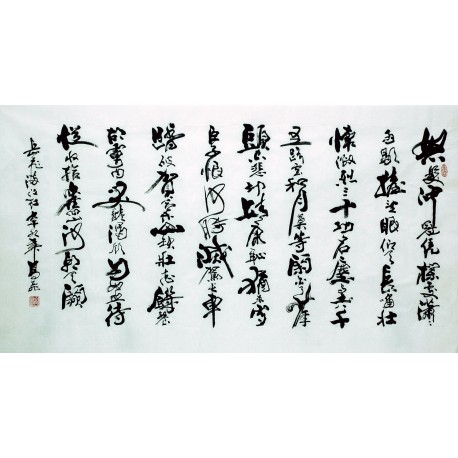 怒髮沖冠凭欄處瀟瀟
雨歇抬望眼仰天長嘯壯
懷激烈三十功名塵與土八千
里路雲和月莫等閒白了少年
頭空悲切靖康恥猶未雪
臣子恨何時滅駕長車
踏破賀蘭山缺壯志飢餐
胡虜肉笑談渴飲匈奴血待
從頭收拾舊山河朝天闕
岳飛滿江紅